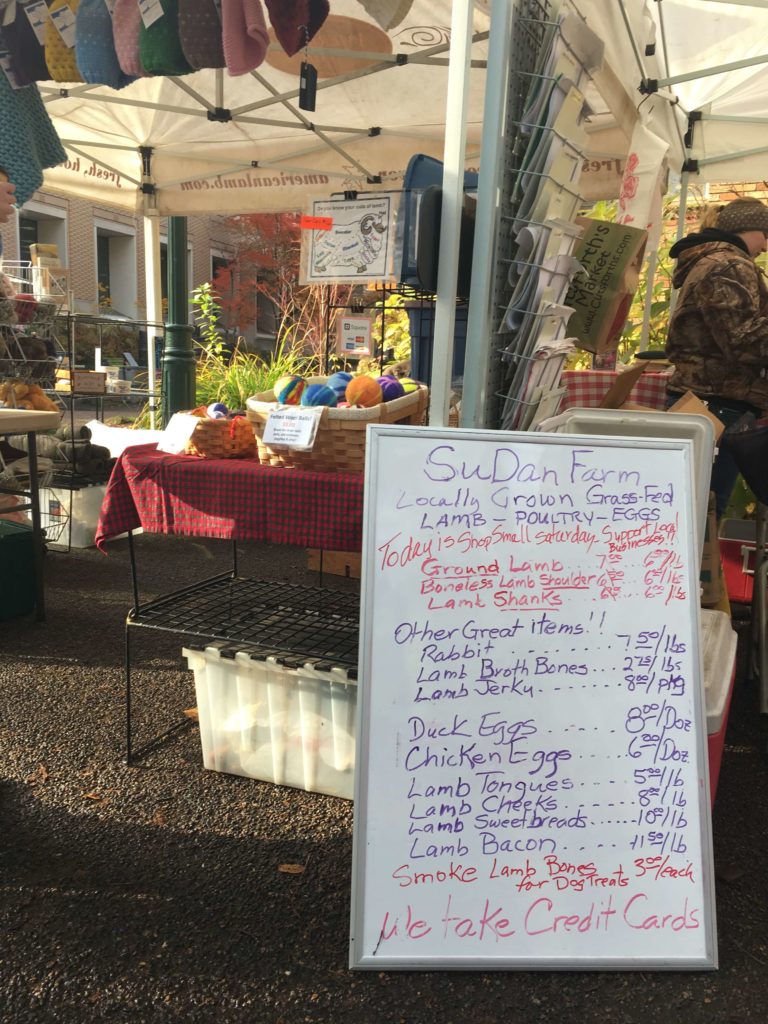 fresh, ho
americanlamb.com
fresh
Do you know your cuts of lamb?
Square
Felted Wool Balls!
Market
SuDan Farm
Locally Grown Grass-Fed
LAMB - POULTRY - EGGS
Today is Shop Small Saturday Support Local
Businesses!!
Ground Lamb 6.00/lb
Boneless Lamb Shoulder 6.00/lb
Lamb Shanks 6.00/lb
Other Great items!!
Rabbit ........ 7.50/lbs
Lamb Broth Bones ... 2.75/lbs
Lamb Jerky ....... 8.00/pkg
Duck Eggs ..... 8.00/Doz
Chicken Eggs ..... 6.00/Doz
Lamb Tongues ..... 5.00/lb
Lamb Cheeks ...... 8.00/lb
Lamb Sweetbreads ...... 10.00/lb
Lamb Bacon .... 11.50/lb
Smoke Lamb Bones 3.00/each
for Dog Treats
We take Credit Cards